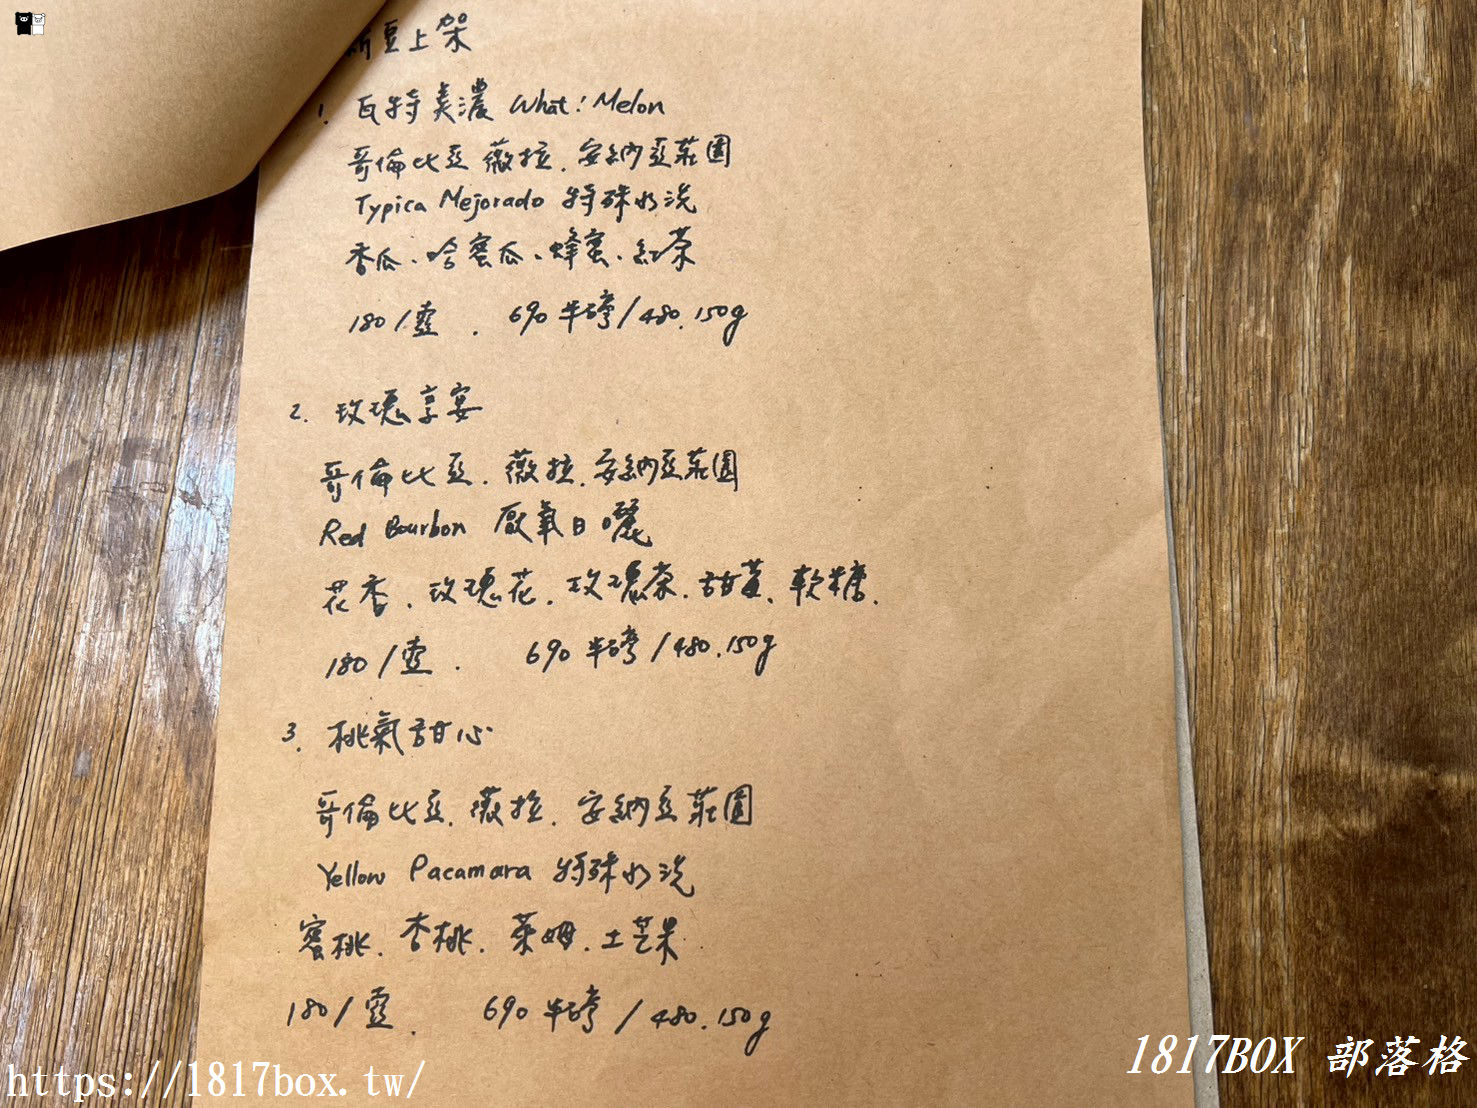 新豆上架
1. 瓦特美濃 What! Melon
哥倫比亞 薇拉.安納亞莊園
Typica Mejorado 特殊水洗
香瓜、哈蜜瓜、蜂蜜、紅茶
180/壺 . 690 半磅/480.150g
2. 玫瑰享宴
哥倫比亞.薇拉.安納亞莊園
Red Bourbon 厭氧日曬
花香.玫瑰花.玫瑰茶.甜薑、軟糖.
180/壺 . 690 半磅/480.150g
3. 桃氣甜心
哥倫比亞.薇拉.安納亞莊園
Yellow Pacamara 特殊水洗
蜜桃.杏桃.萊姆.土芒果
180/壺 . 690 半磅/480.150g
https://1817box.tw/
1817BOX 部落格